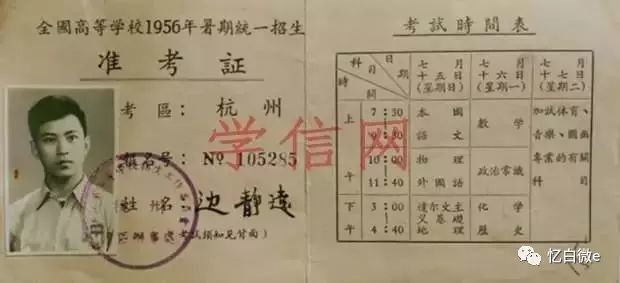 全國高等学校1956年暑期統一招生
准考証
考區：杭州
報名号：№ 105285
姓名：边静遠
(考試須知見背面)
学信网
考試時間表
科目 日期 時間
七月十五日(星期日)
七月十六日(星期一)
七月十七日(星期二)
上午
7:30
9:30
本國語文
数学
加試体育、
音樂、圖画
專業的有關
科目
10:00
11:40
物理
外國語
政治常識
下午
3:00
4:40
達尔文主
义基礎
地理
化学
歷史
忆白微e